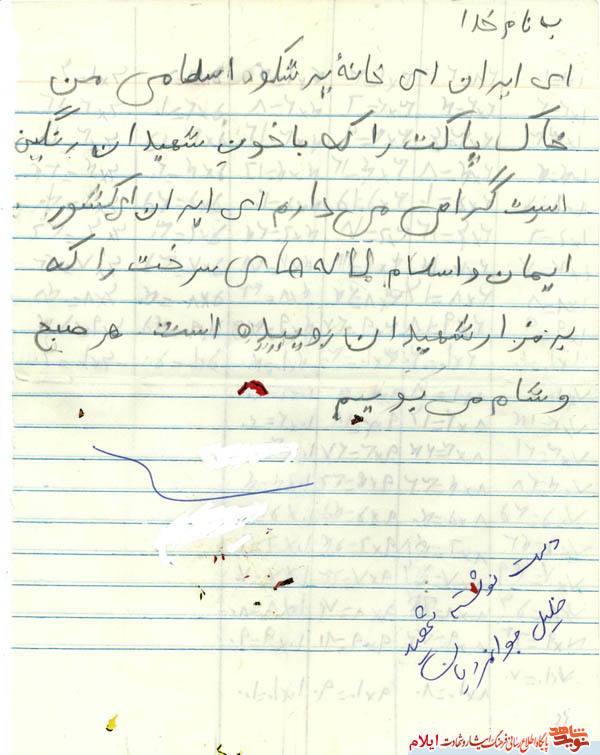 به نام خدا
ای ایران ای خانهٔ پر شکوه اسلامی من
خاک پاکت را که با خون شهیدان رنگین
است گرامی می دارم ای ایران ای کشور
ایمان و اسلام لاله های سرخت را که
بر مزار شهیدان روییده است هر صبح
و شام می بوییم
دست نوشته شهید
خلیل جوانمردیان
نوید شاهد
پایگاه اطلاع رسانی فرهنگ ایثار و شهادت ایلام